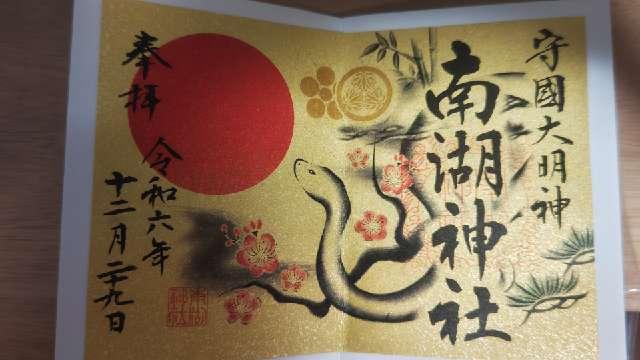 守國大明神
南湖神社
奉拝
令和六年
十二月二十九日